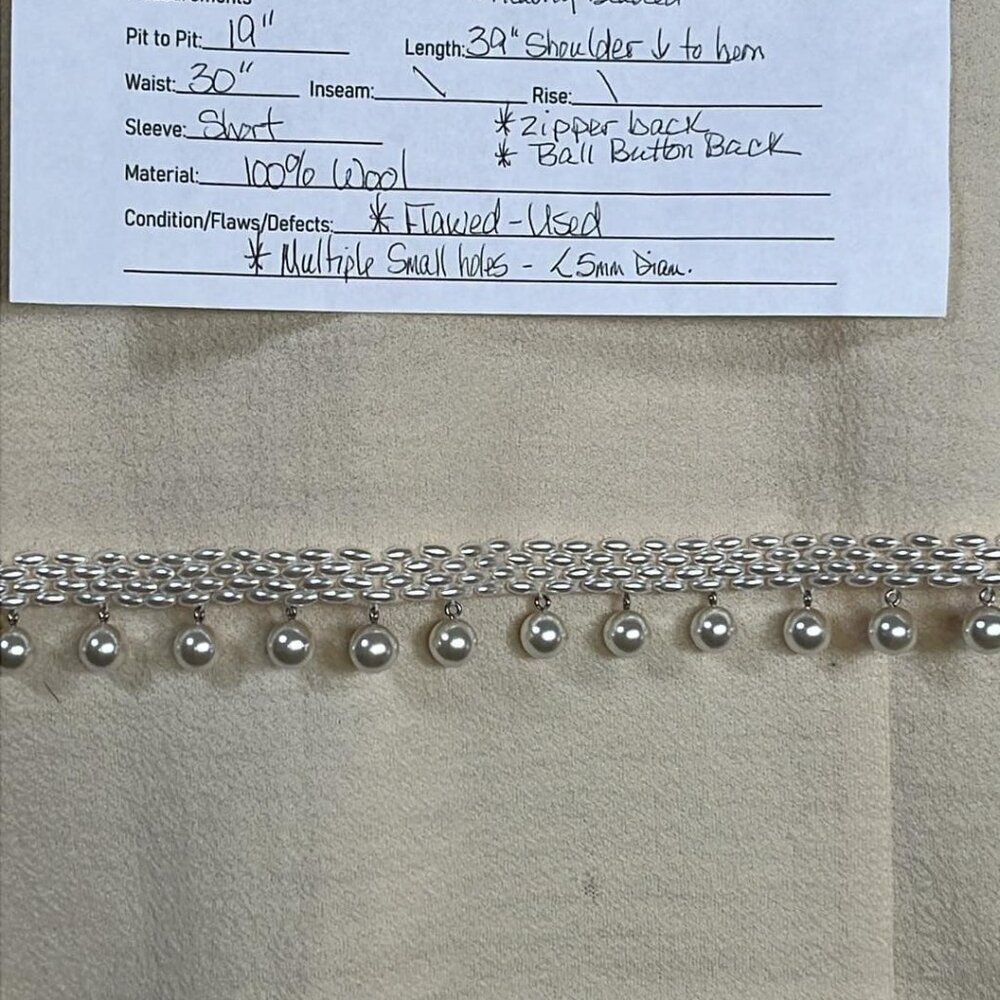 Pit to Pit: 19"
Length: 39" Shoulder ↓ to hem
Waist: 30" Inseam: \ Rise: \
Sleeve: Short
* Zipper back
* Ball Button Back
Material: 100% Wool
Condition/Flaws/Defects: * Flawed - Used
* Multiple Small holes - <5mm Diam.